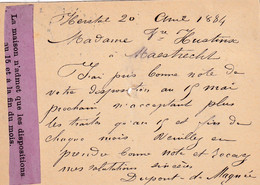 La maison n'admet que les dispositions
au 15 et à la fin du mois.
Herstal 20 Avril 1884
Madame Vve Hustinx
à Maestrecht
J'ai pris bonne note de
votre disposition au 15 mai
prochain n'acceptant plus
les traites qu'au 15 et fin de
chaque mois. Veuillez en
prendre bonne note et recevez
mes salutations sincères
Dupont de